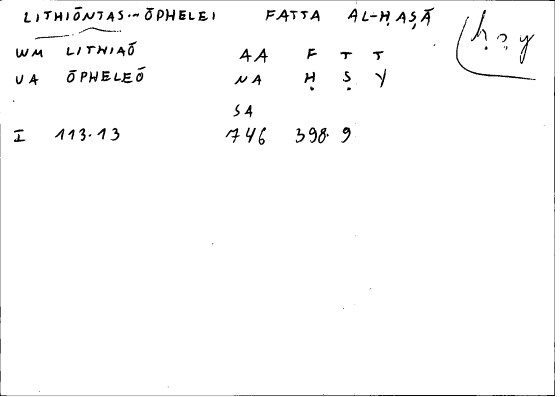 LITHIŌNTAS ~ ŌPHELEI FATTA AL-ḤAṢĀ
WM LITHIAŌ AA F T T
UA ŌPHELEŌ NA Ḥ Ṣ Y
SA
I 113.13 746 398.9